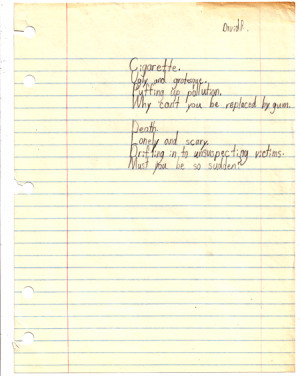 David P.
Cigarette.
Ugly and grotesque.
Putting up pollution.
Why can't you be replaced by gum.
Death.
Lonely and scary.
Drifting in to unsuspecting victims.
Must you be so sudden?